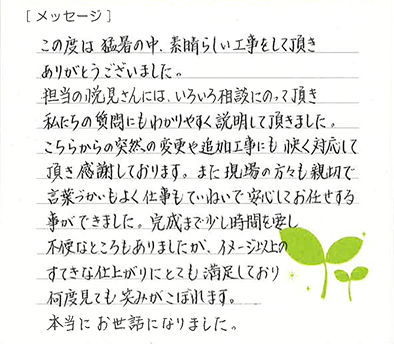 [ メッセージ ]
この度は 猛暑の中、素晴らしい工事をして頂き
ありがとうございました。
担当の悦見さんには、いろいろ相談にのって頂き
私たちの質問にもわかりやすく説明して頂きました。
こちらからの突然の変更や追加工事にも 快く対応して
頂き 感謝しております。また 現場の方々も 親切で
言葉づかいもよく仕事もていねいで安心してお任せする
事ができました。完成まで少し時間を要し
不便なところもありましたが、イメージ以上の
すてきな仕上がりにとても 満足しており
何度見ても 笑みがこぼれます。
本当に お世話になりました。